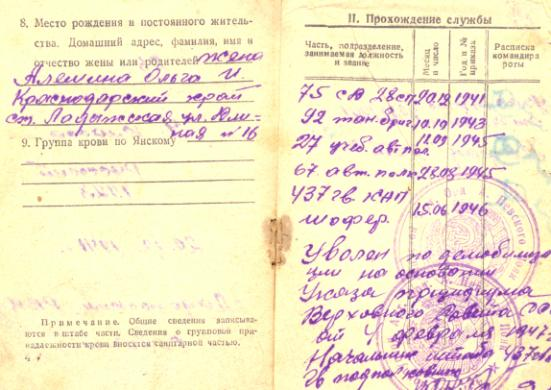 8. Место рождения и постоянного житель-
ства. Домашний адрес, фамилия, имя и
отчество жены или родителей жена
Алешина Ольга И.
Краснодарский край
ст. Ладыжская ул. 
ная №16
9. Группа крови по Янскому
Примечание. Общие сведения записы-
ваются в штабе части. Сведения о групповой при-
надлежности крови вносятся санитарной частью.
4
II. Прохождение службы
Часть, подразделение, занимаемая должность и звание
Месяц и число
Год и № приказа
Расписка командира роты
75 сд 28 сп 20.12 1941
92 тан. бриг 10.10 1943
27 учеб. авт пол. 12.09 1945
67. авт. полк 28.08 1945
437 гв КАП
шофер. 15.06 1946
Уволен по демобилиза
ции на основании
Указа президиума
Верховного Совета
от 4 февраля 1947
Начальник штаба 437 гв
гв подполковник